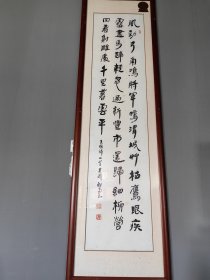 風勁弓角鳴將軍獵渭城草枯鷹眼疾
雪盡馬蹄輕忽過新豐市還歸細柳營
回看射雕處千里暮雲平
王維詩